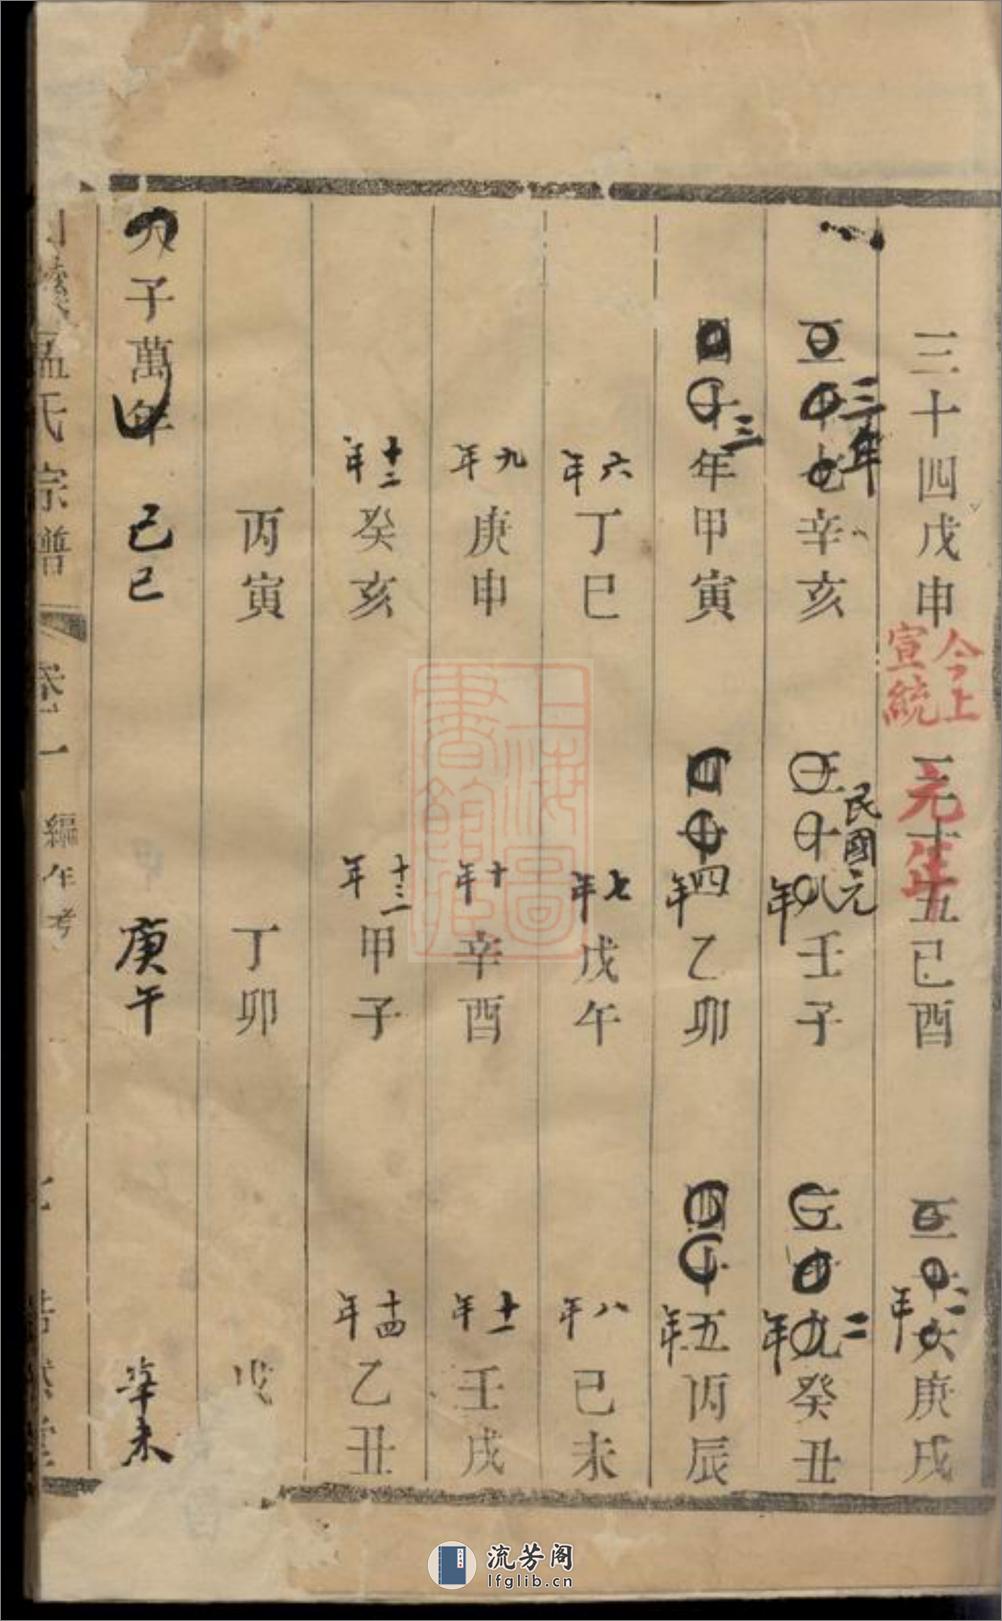 三十四戊申
今上
宣統
元年
三十五己酉
二年
三十六庚戌
三年
三十七辛亥
民國元年
三十八壬子
二年
三十九癸丑
三
四十年甲寅
四十四年乙卯
四十五年丙辰
六年丁巳
七年戊午
八年己未
九年庚申
十年辛酉
十一年壬戌
十二年癸亥
十三年甲子
十四年乙丑
丙寅
丁卯
戊
子萬年
己巳
庚午
辛未
孟氏宗譜
卷一
編年考
上海圖書館藏
流芳阁
lfglib.cn